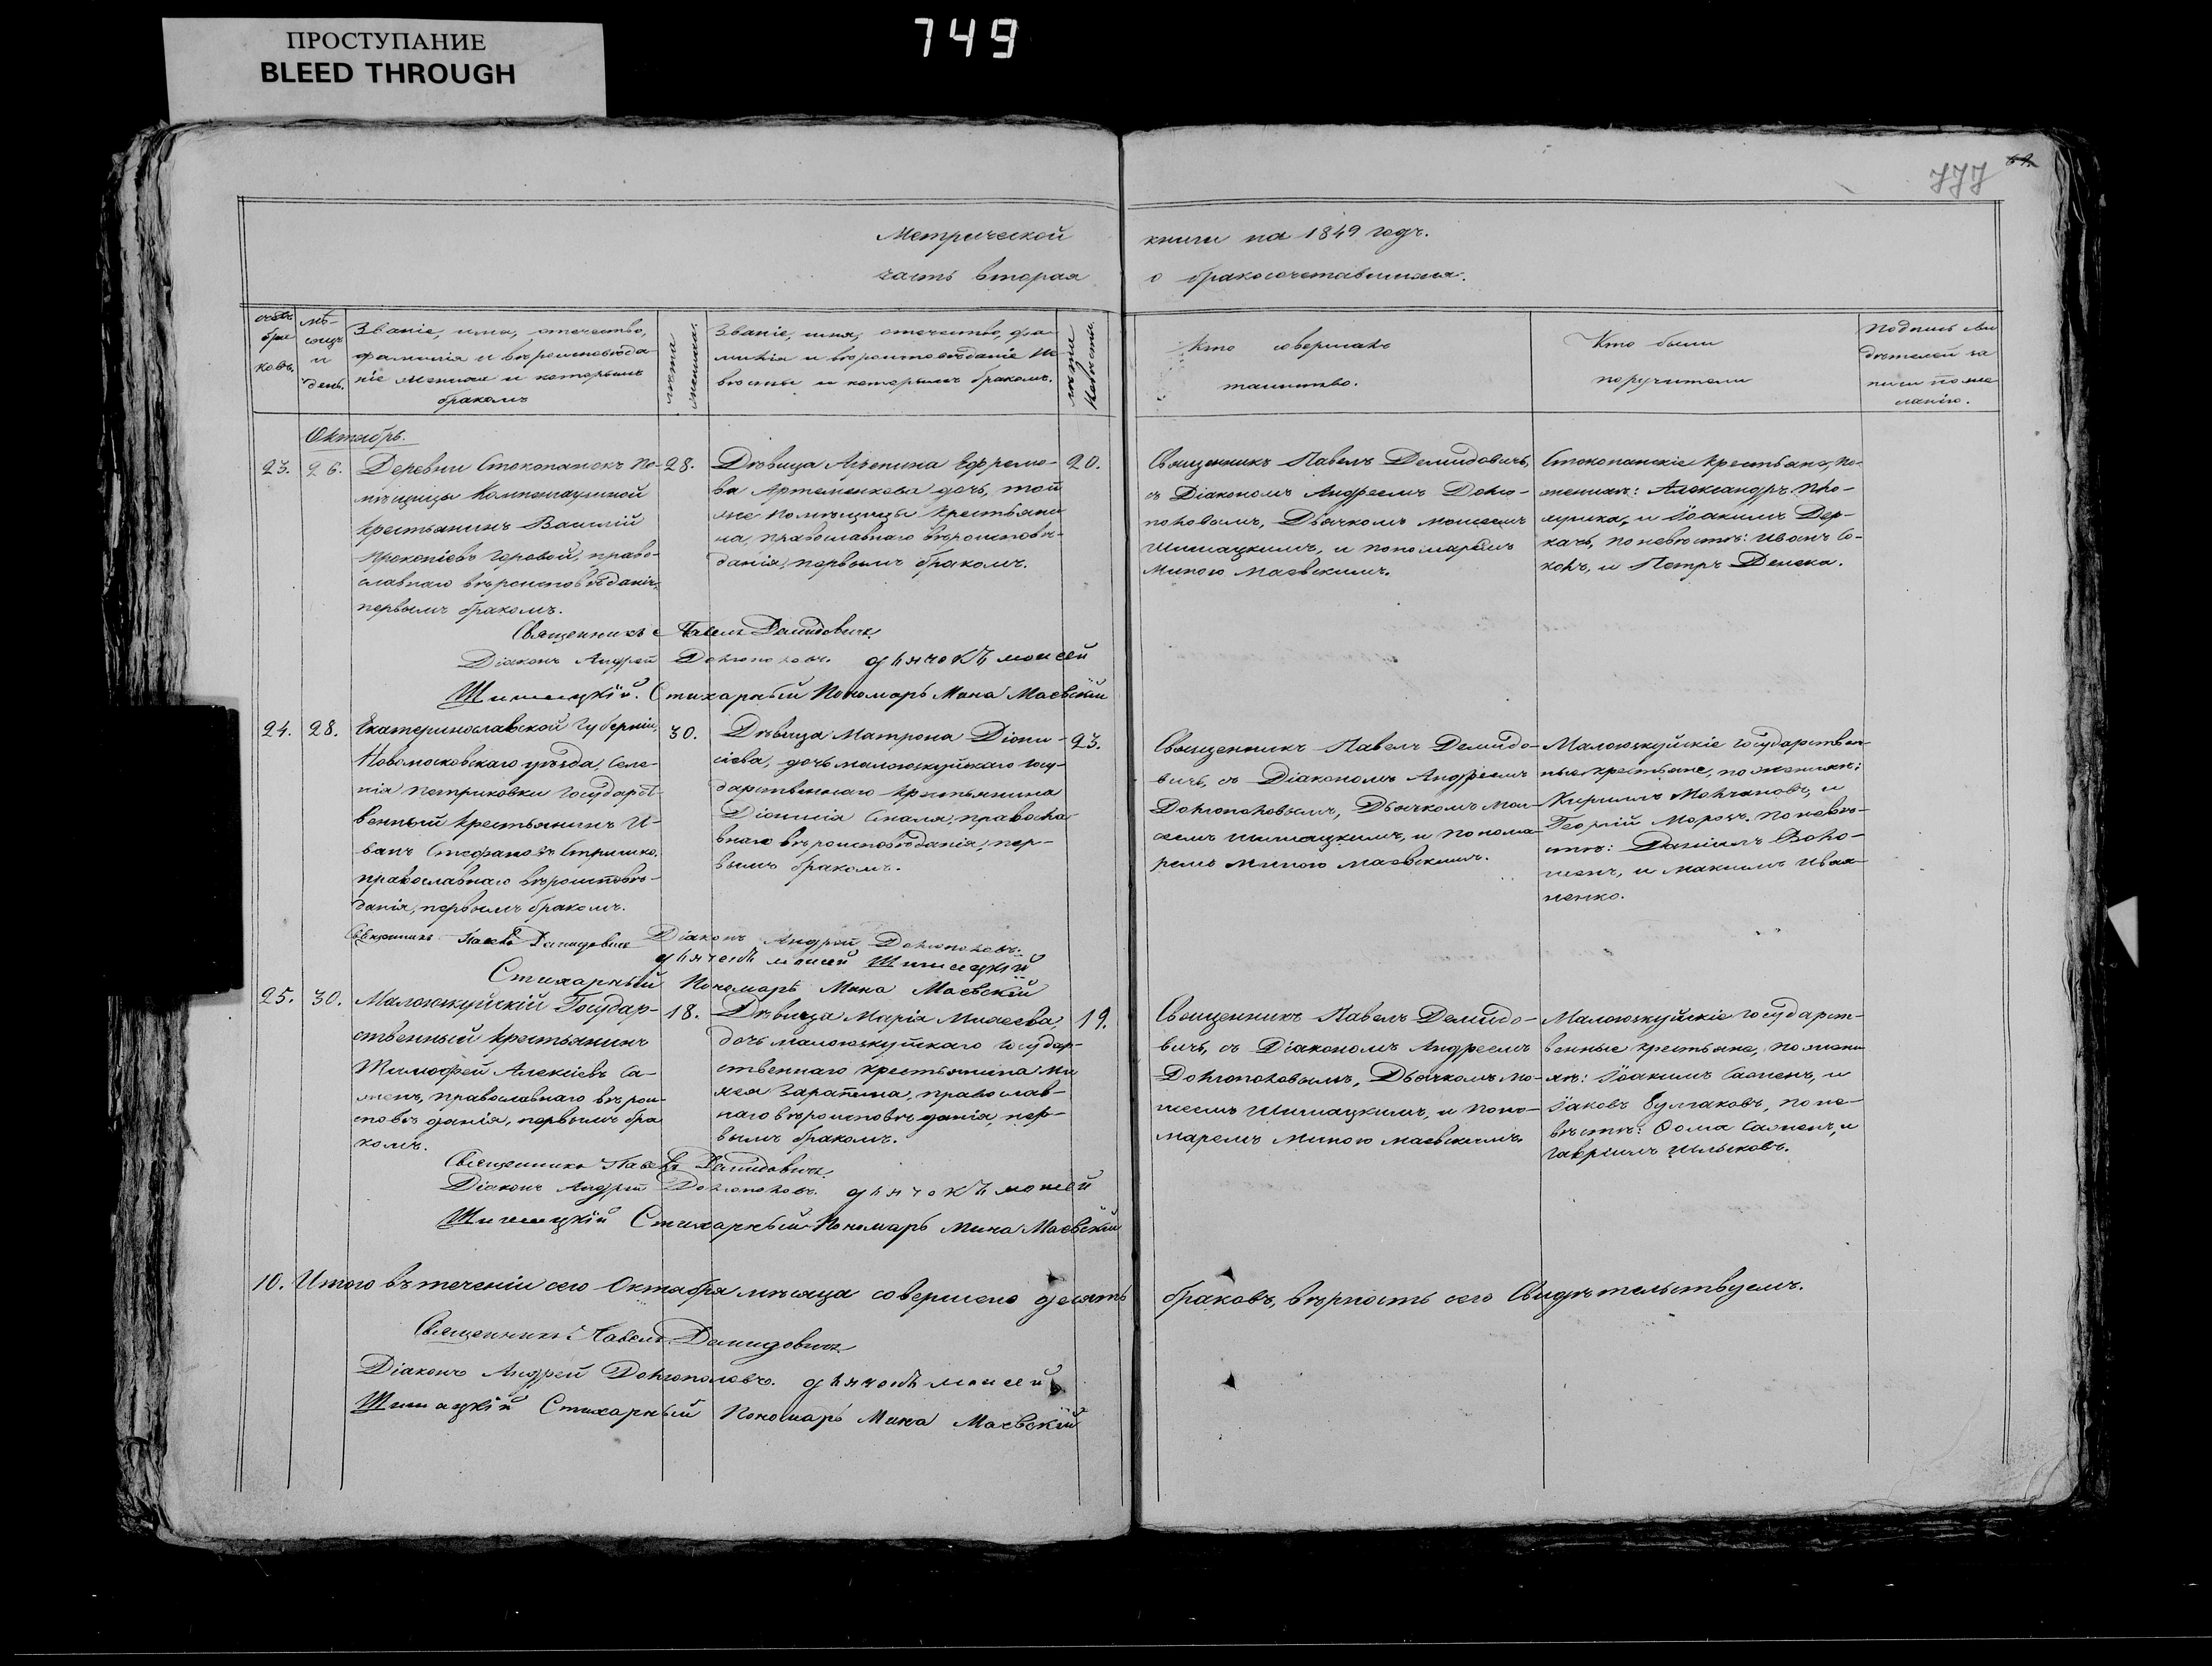 749
ПРОСТУПАНИЕ
BLEED THROUGH
777
Метрической
часть вторая
книги на 1849 годъ.
о бракосочетавшихся.
бра
ковъ.
мѣ-
сяцъ
и
день.
Званіе, имя, отечество,
фамилія и вѣроисповѣда
ніе жениха и которымъ
бракомъ
лѣта
жениха.
Званіе, имя, отечество, фа
милія и вѣроисповѣданіе не
вѣсты и которымъ бракомъ.
лѣта
невѣсты.
Кто совершалъ
таинство.
Кто были
поручители
подпись сви
дѣтелей за
писи по же
ланію.
Октябрь.
23.
26.
Деревни По-
мѣщицы
крестьянинъ Василій
Прокопіевъ право-
славнаго вѣроисповѣданія,
первымъ бракомъ.
28.
Дѣвица Ефремо-
ва Артеменкова дочь, той
же помѣщицы крестьяни
на, православнаго вѣроисповѣ-
данія, первымъ бракомъ.
20.
Священникъ Павелъ Демидовичъ,
съ Діакономъ Андреемъ Долго-
половымъ, Дьячкомъ моисеемъ
Шишацкимъ, и пономаремъ
Миною Маевскимъ.
крестьяне, по
женихѣ: Александръ
и Іоакимъ Дер-
качъ, по невѣстѣ: Иванъ Со-
колъ, и Петръ Денека.
Священникъ Павелъ Демидовичъ
Діаконъ Андрей Долгополовъ. дьячокъ моисей
Шишацкій. Стихарный Пономарь Мина Маевскій
24.
28.
Екатеринославской Губерніи,
Новомосковскаго уѣзда, Селе-
нія петриковки Государст
венный крестьянинъ И-
ванъ Стефановъ
православнаго вѣроисповѣ-
данія, первымъ бракомъ.
30.
Дѣвица Матрона Діони-
сіева, дочь госу-
дарственнаго крестьянина
Діонисія правосла-
внаго вѣроисповѣданія, пер-
вымъ бракомъ.
23.
Священникъ Павелъ Демидо-
вичъ, съ Діакономъ Андреемъ
Долгополовымъ, Дьячкомъ Мои-
сеемъ Шишацкимъ, и понома-
ремъ Миною Маевскимъ.
государствен-
ные крестьяне, по женихѣ:
Кириллъ Молчановъ, и
Георгій Морозъ. по невѣ-
стѣ: Даніилъ Воло-
шенъ, и Максимъ Ива-
ненко.
Священникъ Павелъ Демидовичъ Діаконъ Андрей Долгополовъ.
дьячокъ моисей Шишацкій
Стихарный Пономарь Мина Маевскій
25.
30.
Государ-
ственный крестьянинъ
Тимофей Алексіевъ Са-
женъ, православнаго вѣрои-
сповѣданія, первымъ бра
комъ.
18.
Дѣвица Марія Михеева,
дочь государ-
ственнаго крестьянина Ми
хея православ-
наго вѣроисповѣданія, пер-
вымъ бракомъ.
19.
Священникъ Павелъ Демидо-
вичъ, съ Діакономъ Андреемъ
Долгополовымъ, Дьячкомъ Мо-
исеемъ Шишацкимъ, и поно-
маремъ Миною Маевскимъ.
государст-
венные крестьяне, по жени
хѣ: Іоакимъ Саженъ, и
Іаковъ Булаковъ, по не-
вѣстѣ: Ѳома Саженъ, и
Гавріилъ
Священникъ Павелъ Демидовичъ
Діаконъ Андрей Долгополовъ. дьячокъ моисей
Шишацкій Стихарный Пономарь Мина Маевскій
10. Итого въ теченіи сего Октября мѣсяца совершено десять браковъ, вѣрность сего Свидѣтельствуемъ.
Священникъ Павелъ Демидовичъ
Діаконъ Андрей Долгополовъ. дьячокъ моисей
Шишацкій Стихарный Пономарь Мина Маевскій